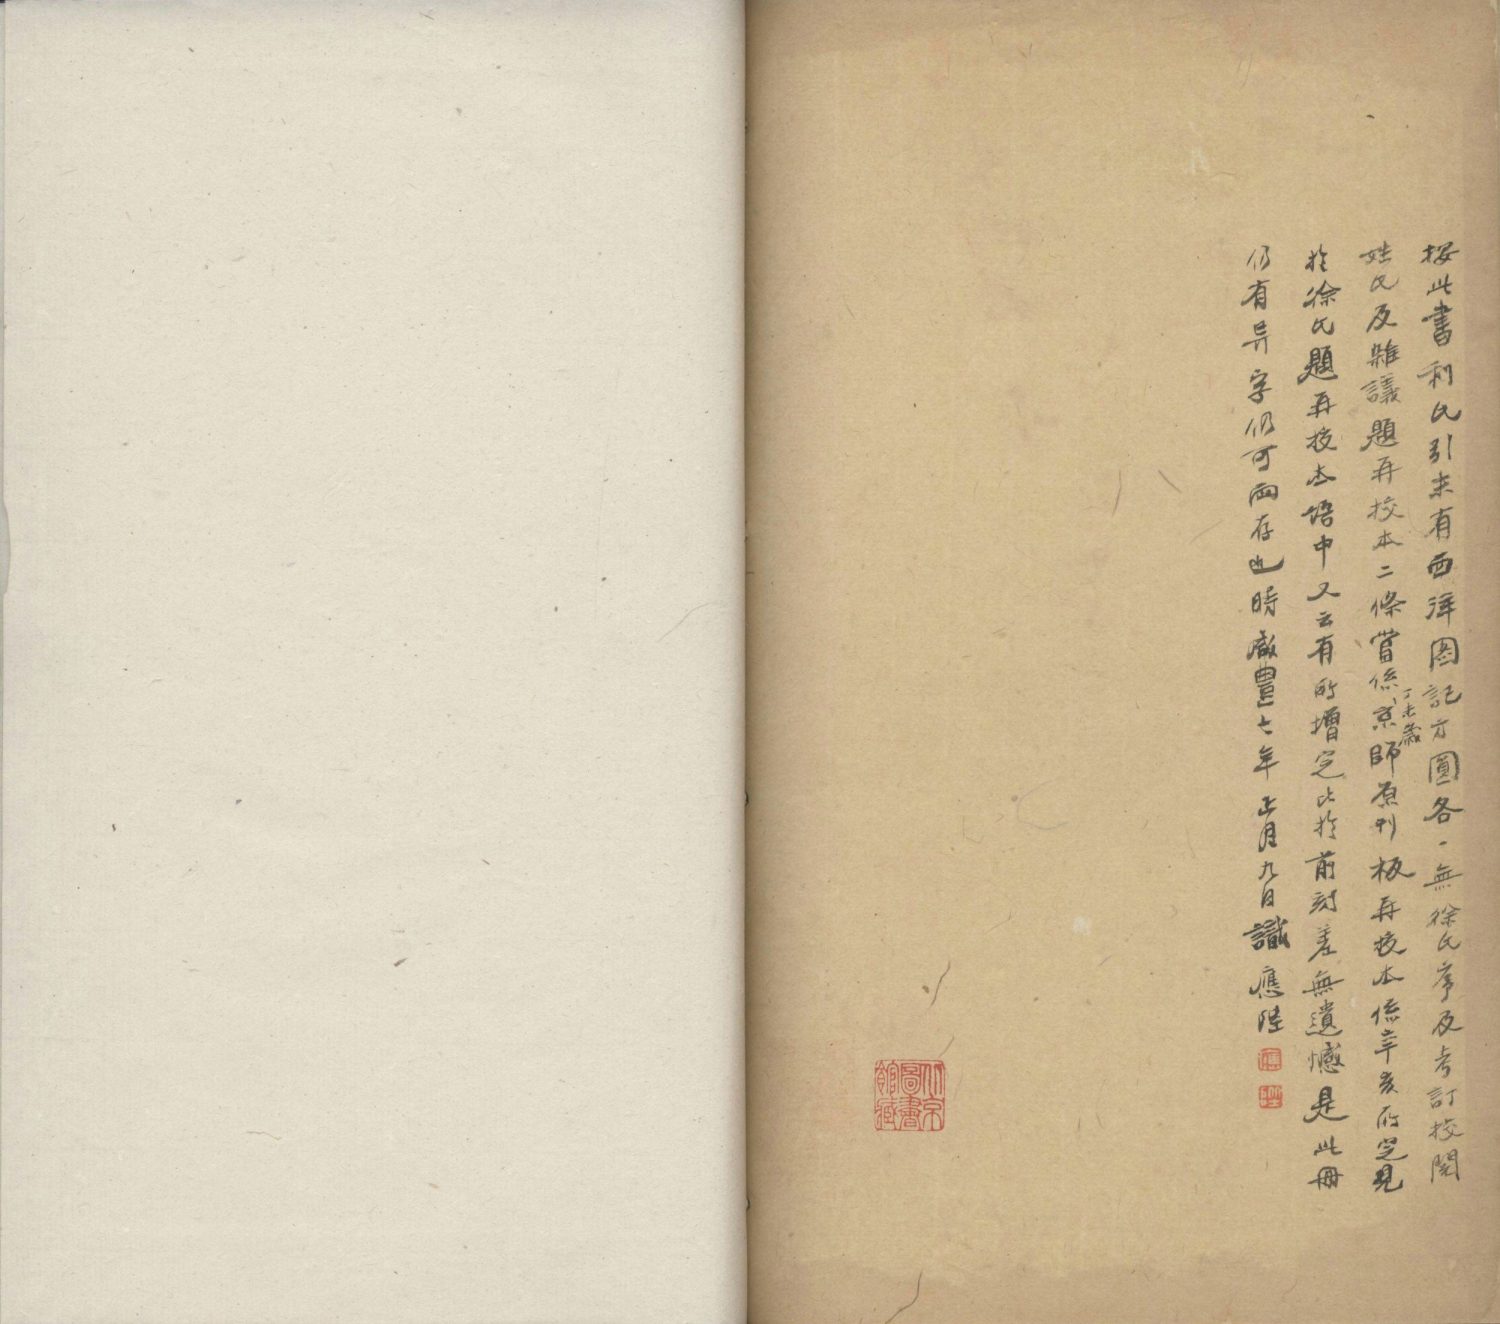 按此書利氏引未有西洋图記方圓各一無徐氏序及考訂校閱
姓氏及雜議題再校本二條嘗係丁未歲京師原刊板再校本係辛亥所定見
於徐氏題再校本語中又云有所增定比於前刻差無遺憾是此冊
仍有异字仍可兩存也時咸豐七年正月九日識應陛
應
陛
北京圖書館藏